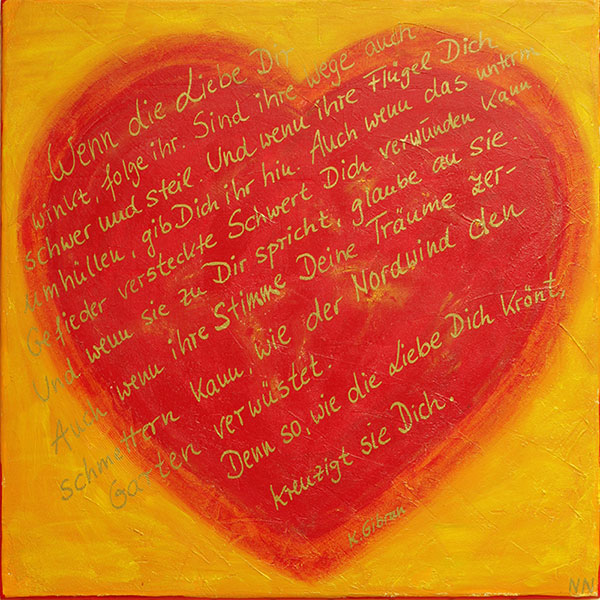 Wenn die Liebe Dir
winkt, folge ihr. Sind ihre wege auch
schwer und steil. Und wenn ihre Flügel Dich
umhüllen, gib Dich ihr hin. Auch wenn das unterm
Gefieder versteckte Schwert Dich verwunden kann.
Und wenn sie zu Dir spricht, glaube an sie.
Auch wenn ihre Stimme Deine Träume zer-
schmettern kann, wie der Nordwind den
Garten verwüstet.
Denn so, wie die Liebe Dich krönt,
kreuzigt sie Dich.
K. Gibran
NN